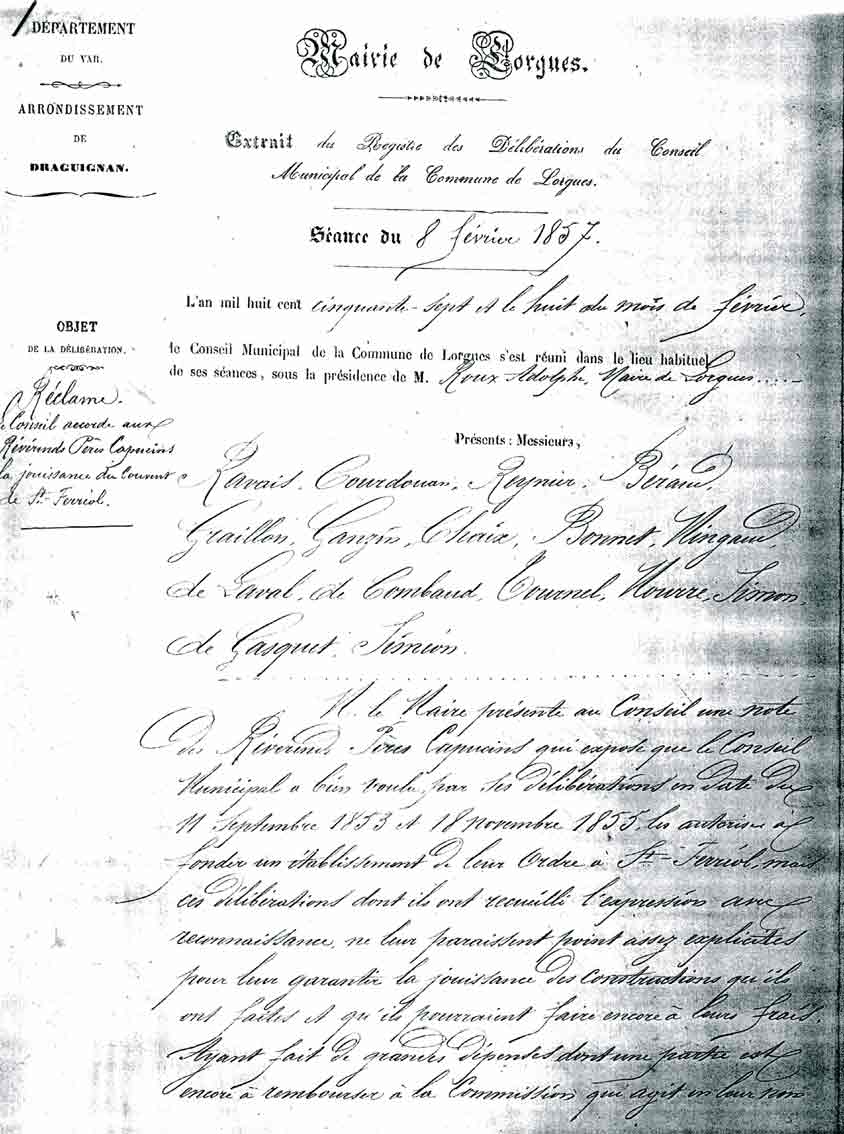 DÉPARTEMENT
DU VAR.
ARRONDISSEMENT
DE
DRAGUIGNAN.
Mairie de Lorgues.
Extrait du Registre des Délibérations du Conseil
Municipal de la Commune de Lorgues.
Séance du 8 février 1857.
OBJET
DE LA DÉLIBÉRATION.
Réclame.
Conseil accorde aux
Révérends Pères Capucins
la jouissance du Couvent
de St. Ferréol.
L'an mil huit cent cinquante-sept et le huit du mois de février,
le Conseil Municipal de la Commune de Lorgues s'est réuni dans le lieu habituel
de ses séances, sous la présidence de M. Roux Adolphe, Maire de Lorgues.....
Présents : Messieurs,
Ravais, Courdouan, Reynier, Béraud,
Graillon, Ganzin, Chaix, Bonnet, Mingaud,
de Laval, de Combaud, Tournel, Nourre, Simon,
de Gasquet, Siméon.
M. le Maire présente au Conseil une note
des Révérends Pères Capucins qui expose que le Conseil
Municipal a bien voulu, par ses délibérations en date du
11 Septembre 1853 et 18 novembre 1855, les autoriser à
fonder un établissement de leur Ordre à St-Ferréol, mais
ces délibérations dont ils ont recueilli l'expression avec
reconnaissance, ne leur paraissent point assez explicites
pour leur garantir la jouissance des constructions qu'ils
ont faites et qu'ils pourraient faire encore à leurs frais.
Ayant fait de grandes dépenses dont une partie est
encore à rembourser à la Commission qui agit en leur nom